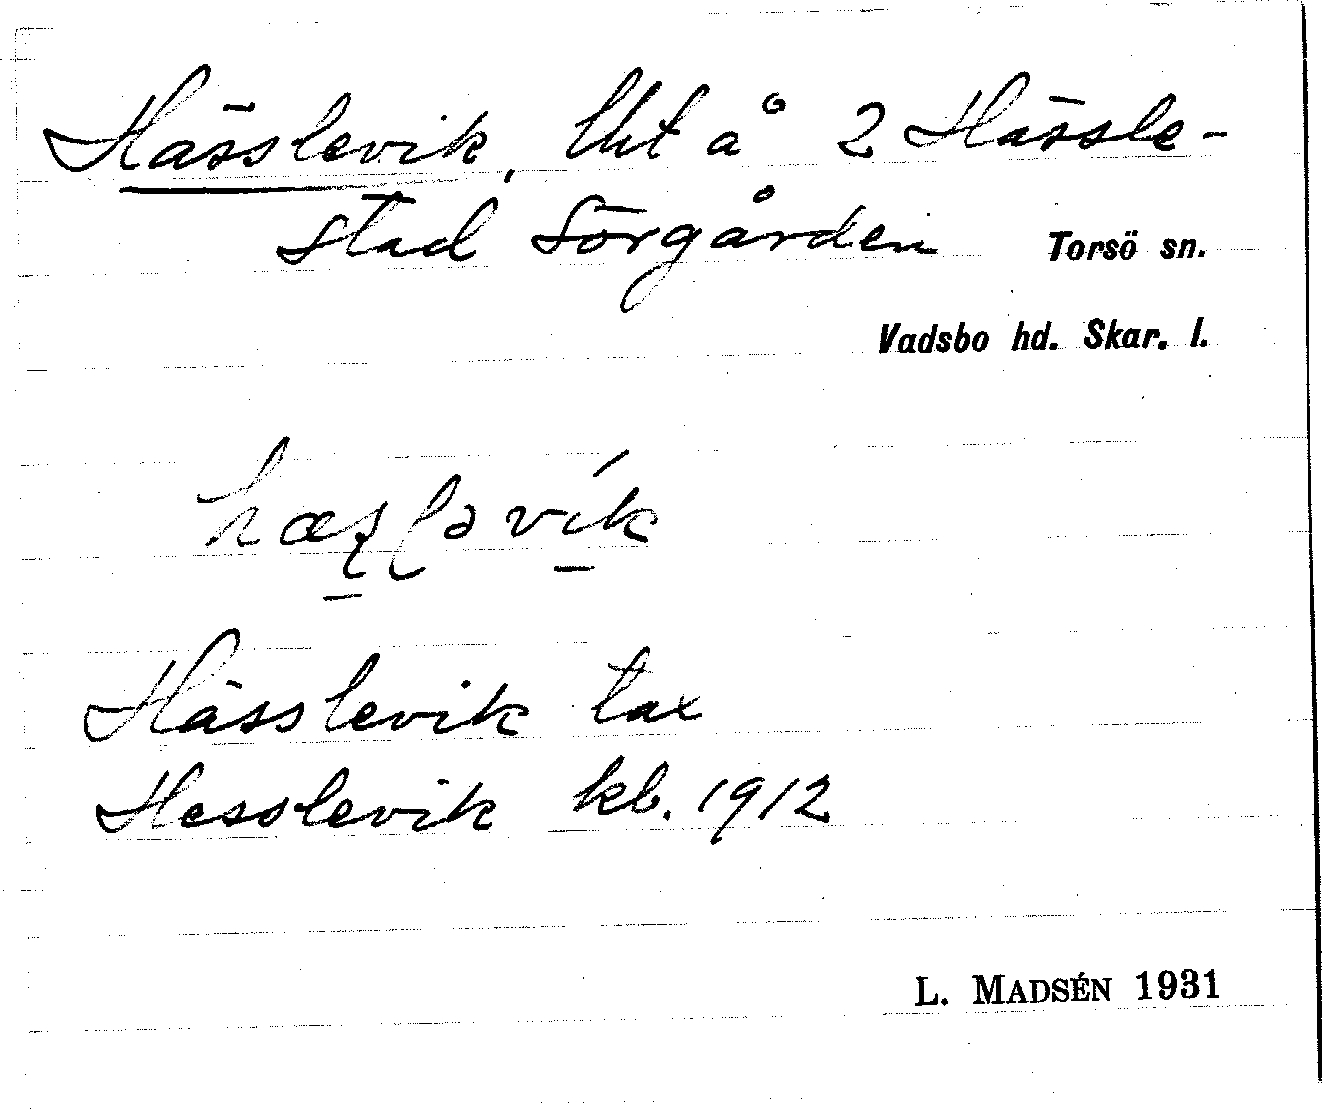 Hässlevik, lht å 2 Hässle-
stad Sörgården Torsö sn.
Vadsbo hd. Skar. l.
Hässlevik tax
Hesslevik kb. 1912
L. MADSÉN 1931